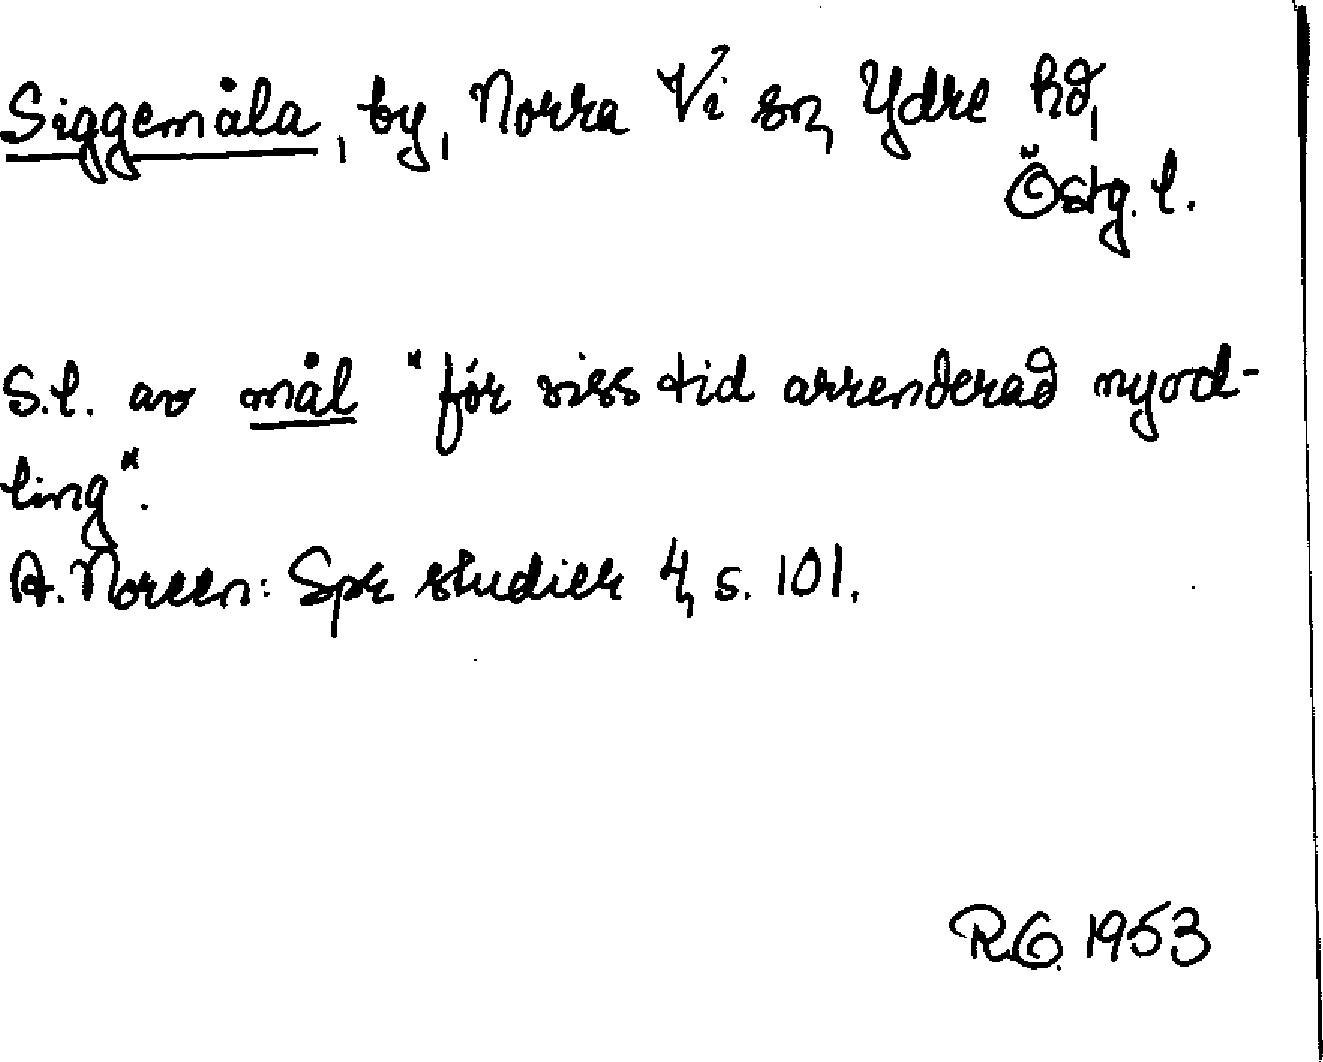 Siggemåla, by, Norra Vi sn, Ydre hd,
Östg. l.
S.l. av mål "för viss tid arrenderad nyod-
ling".
A. Noreen: Spr studier 4, s. 101.
R.G. 1953